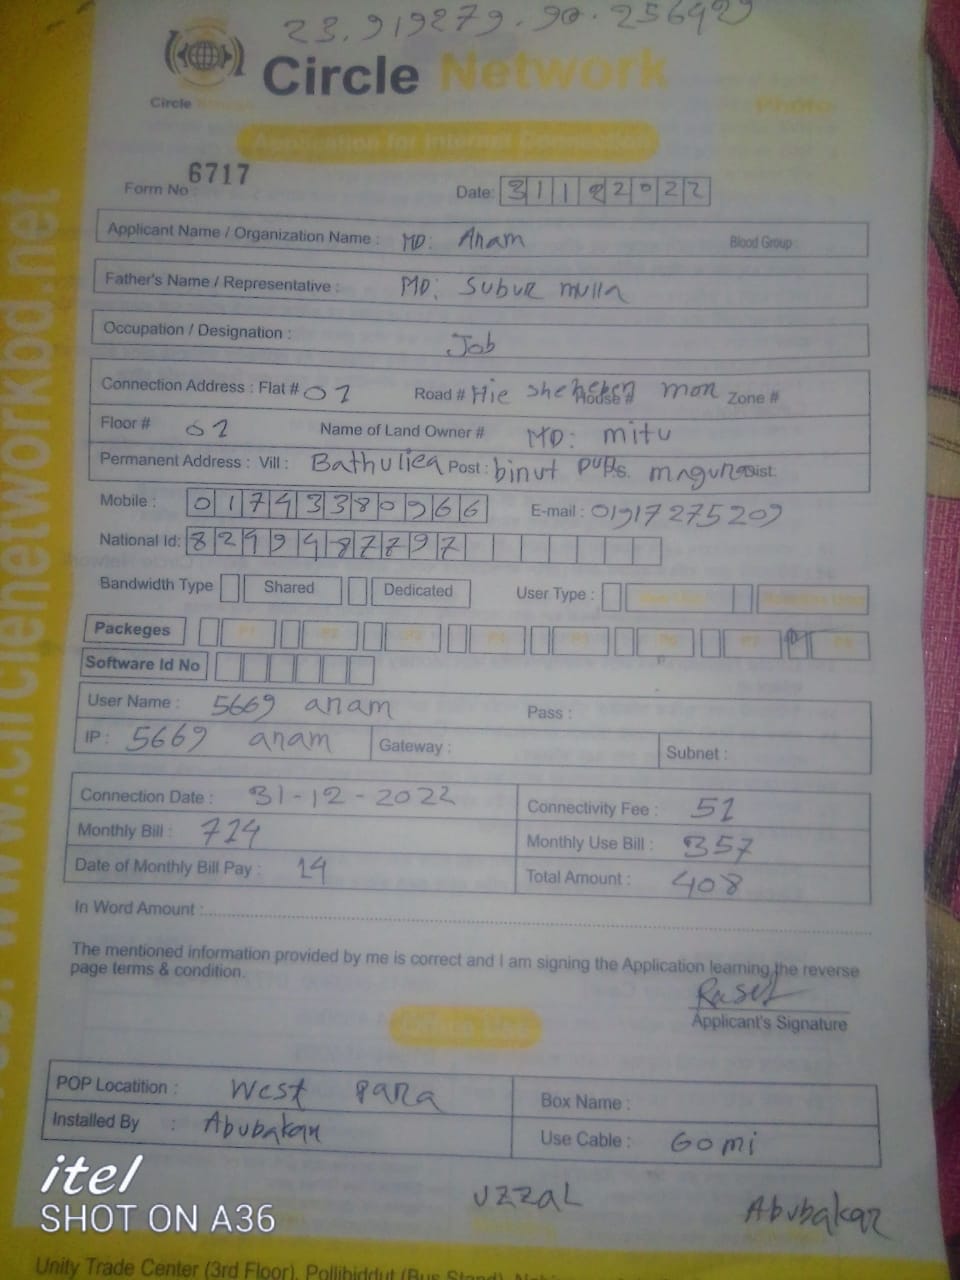 23.919279.90.256429
Circle Network
Circle
Photo
Application for Internet Connection
Form No 6717
Date: 31122022
Applicant Name / Organization Name : MD: Anam Blood Group:
Father's Name / Representative : MD: Subur mulla
Occupation / Designation : Job
Connection Address : Flat # 02 Road # House # mon Zone #
Floor # 02 Name of Land Owner # MD: mitu
Permanent Address : Vill : Bathuliea Post : binut P.s. magura Dist.
Mobile : 01743380966 E-mail : 01917275209
National Id: 8299487797
Bandwidth Type Shared Dedicated User Type :
Packeges P1 P2 P3 P4 P5 P6 P7 P8
Software Id No
User Name : 5669 anam Pass :
IP : 5669 anam Gateway : Subnet :
Connection Date : 31-12-2022 Connectivity Fee : 51
Monthly Bill : 714 Monthly Use Bill : 357
Date of Monthly Bill Pay : 14 Total Amount : 408
In Word Amount :
The mentioned information provided by me is correct and I am signing the Application learning the reverse
page terms & condition.
Rasel
Applicant's Signature
Office Use
POP Locatition : West Para Box Name :
Installed By : Abubakar Use Cable : 60 mi
uzzal Abubakar
itel
SHOT ON A36
Unity Trade Center (3rd Floor), Pollibiddut (Bus Stand),
www.circlenetworkbd.net